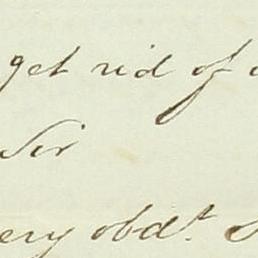 get rid of
Sir
ery obdt.